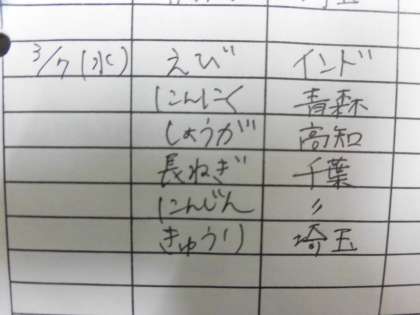 3/7(水) えび インド
にんにく 青森
しょうが 高知
長ねぎ 千葉
にんじん 〃
きゅうり 埼玉